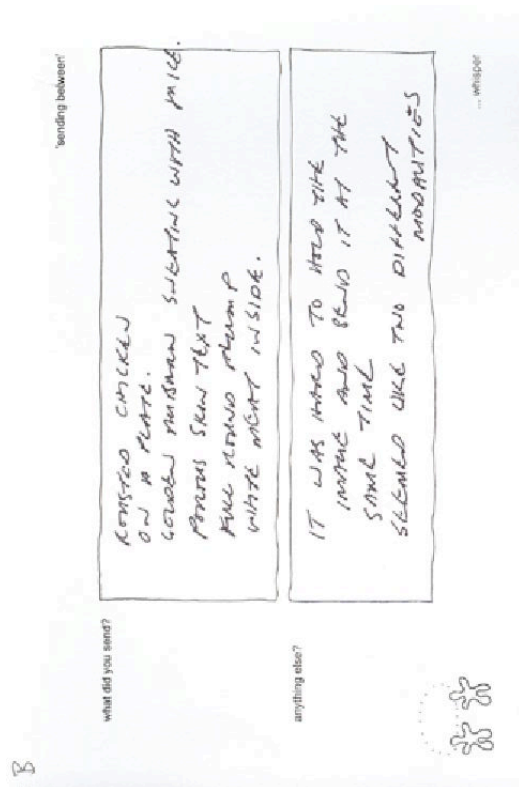 B
'sending between'
what did you send?
ROASTED CHICKEN
ON A PLATE.
GOLDEN AUBURN SWEATING WITH JUICE.
POROUS SKIN TEXT
FULL ROUND PLUMP
WHITE MEAT INSIDE.
anything else?
IT WAS HARD TO HOLD THE
IMAGE AND SEND IT AT THE
SAME TIME
SEEMED LIKE TWO DIFFERENT
MODALITIES
... whisper